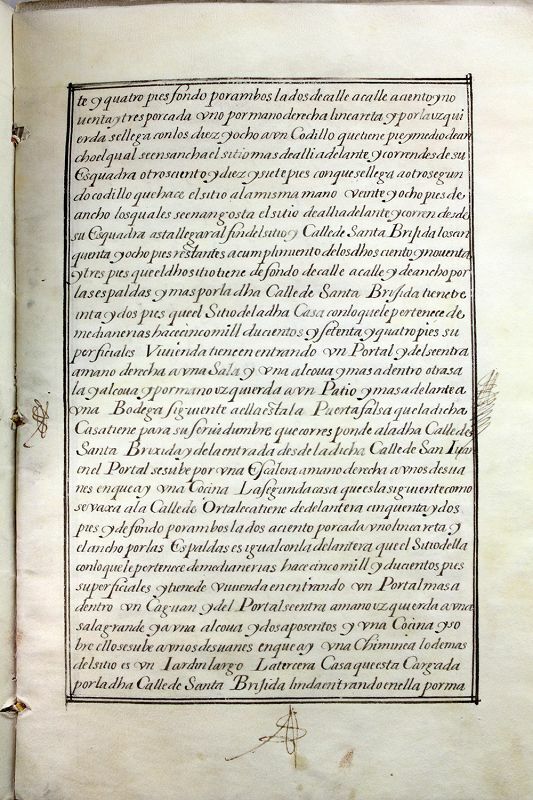 te y quatro pies fondo por ambos lados de calle a calle a ciento y no
uenta y tres por cada vno por mano derecha linea reta y por la yzqui
erda se llega con los diez y ocho a vn Codillo que tiene pie y medio de an
cho el qual se ensancha el sitio mas de alli adelante y corren desde su
Esquadra otros ciento y diez y siete pies con que se llega a otro segun
do codillo que hace el sitio a la misma mano veinte y ocho pies de
ancho los quales se enangosta el sitio de alli adelante y corren desde
su Esquadra asta llegar al fin del sitio y Calle de Santa Brisida los cin
quenta y ocho pies restantes a cumplimiento de los dhos ciento y nouenta
y tres pies que el dho sitio tiene de fondo de calle a calle y de ancho por
las espaldas y mas por la dha Calle de Santa Brisida tiene tre
inta y dos pies que el Sitio de la dha Casa con lo que le pertenece de
medianerias hace cinco mill ducientos y setenta y quatro pies su
perficiales Viuienda tiene en entrando vn Portal y del se entra
a mano derecha a vna Sala y vna alcoua y mas adentro otra sa
la y alcoua y por mano yzquierda a vn Patio y mas adelante a
vna Bodega siguiente a ella esta la Puerta falsa que la dicha
Casa tiene para su seruidumbre que corresponde a la dha Calle de
Santa Brixida y de la entrada desde la dicha Calle de San
en el Portal se sube por vna Escalera a mano derecha a vnos desua
nes en que ay vna Cocina La segunda casa que es la siguiente como
se vaxa a la Calle de Ortaleca tiene de delantera cinquenta y dos
pies y de fondo por ambos lados a ciento por cada vno linea reta y
el ancho por las Espaldas es igual con la delantera que el Sitio della
con lo que le pertenece de medianerias hace cinco mill y ducientos pies
superficiales y tiene de viuienda en entrando vn Portal mas a
dentro vn Caguan y del Portal se entra a mano yzquierda a vna
sala grande y a vna alcoua y dos aposentos y vna Cocina y so
bre ello se sube a vnos desuanes en que ay vna Chiminea lo demas
del sitio es vn Iardin largo La tercera Casa que esta Cargada
por la dha Calle de Santa Brisida linda entrando en ella por ma